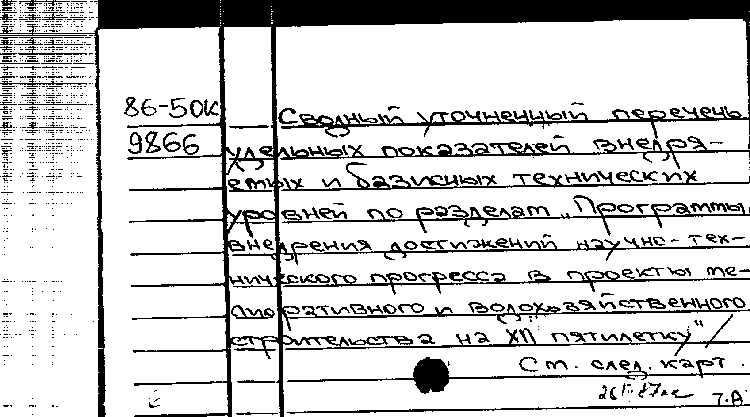 86-50К
9866
Сводный уточненный перечень
удельных показателей внедря-
емых и базисных технических
уровней по разделам „Программы
внедрения достижений научно-тех-
нического прогресса в проекты ме-
лиоративного и водохозяйственного
строительства на XII пятилетку" /
См. след. карт.
т.А